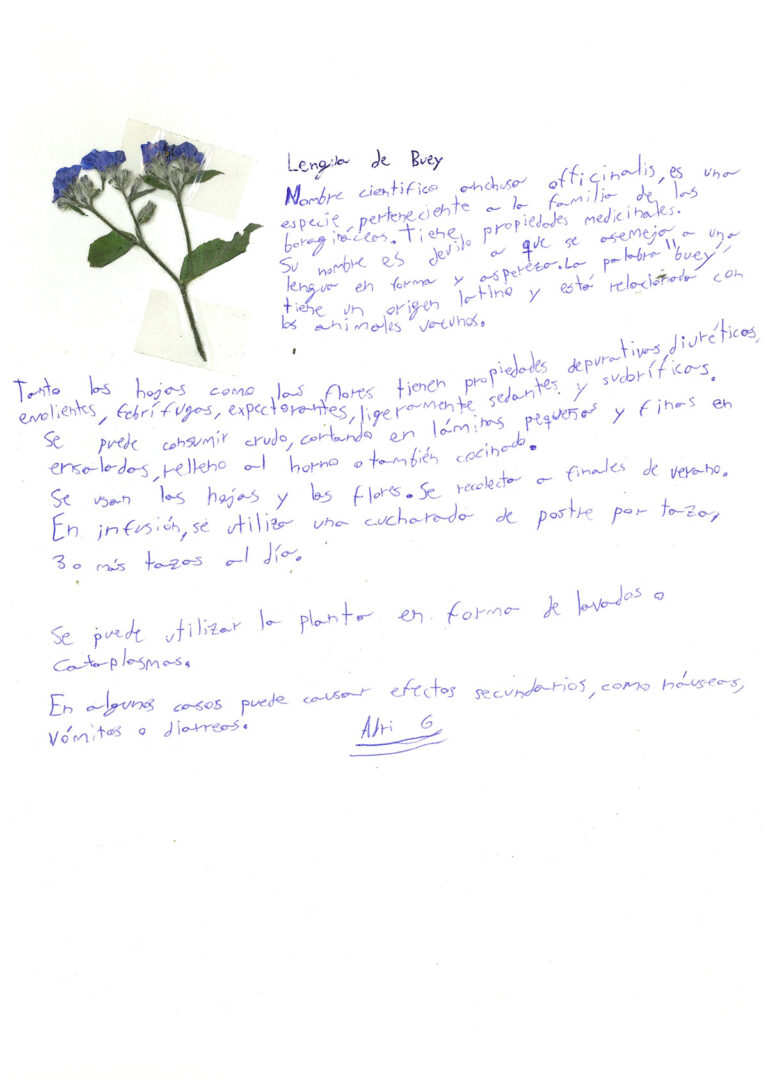 Lengua de Buey
Nombre cientifico anchusa officinalis, es una
especie perteneciente a la familia de las
boragináceas. Tiene propiedades medicinales.
Su nombre es devido a que se asemeja a una
lengua en forma y aspereza. La palabra "buey"
tiene un origen latino y está relacionada con
los animales vacunos.
Tanto las hojas como las flores tienen propiedades depurativas, diuréticas,
emolientes, febrífugas, expectorantes, ligeramente sedantes y sudoríficas.
Se puede consumir crudo, cortando en láminas pequeñas y finas en
ensaladas, relleno al horno o también cocinado.
Se usan las hojas y las flores. Se recolecta a finales de verano.
En infusión, se utiliza una cucharada de postre por taza,
3 o más tazas al día.
Se puede utilizar la planta en forma de lavados o
cataplasmas.
En algunos casos puede causar efectos secundarios, como náuseas,
vómitos o diarreas.
Adri G